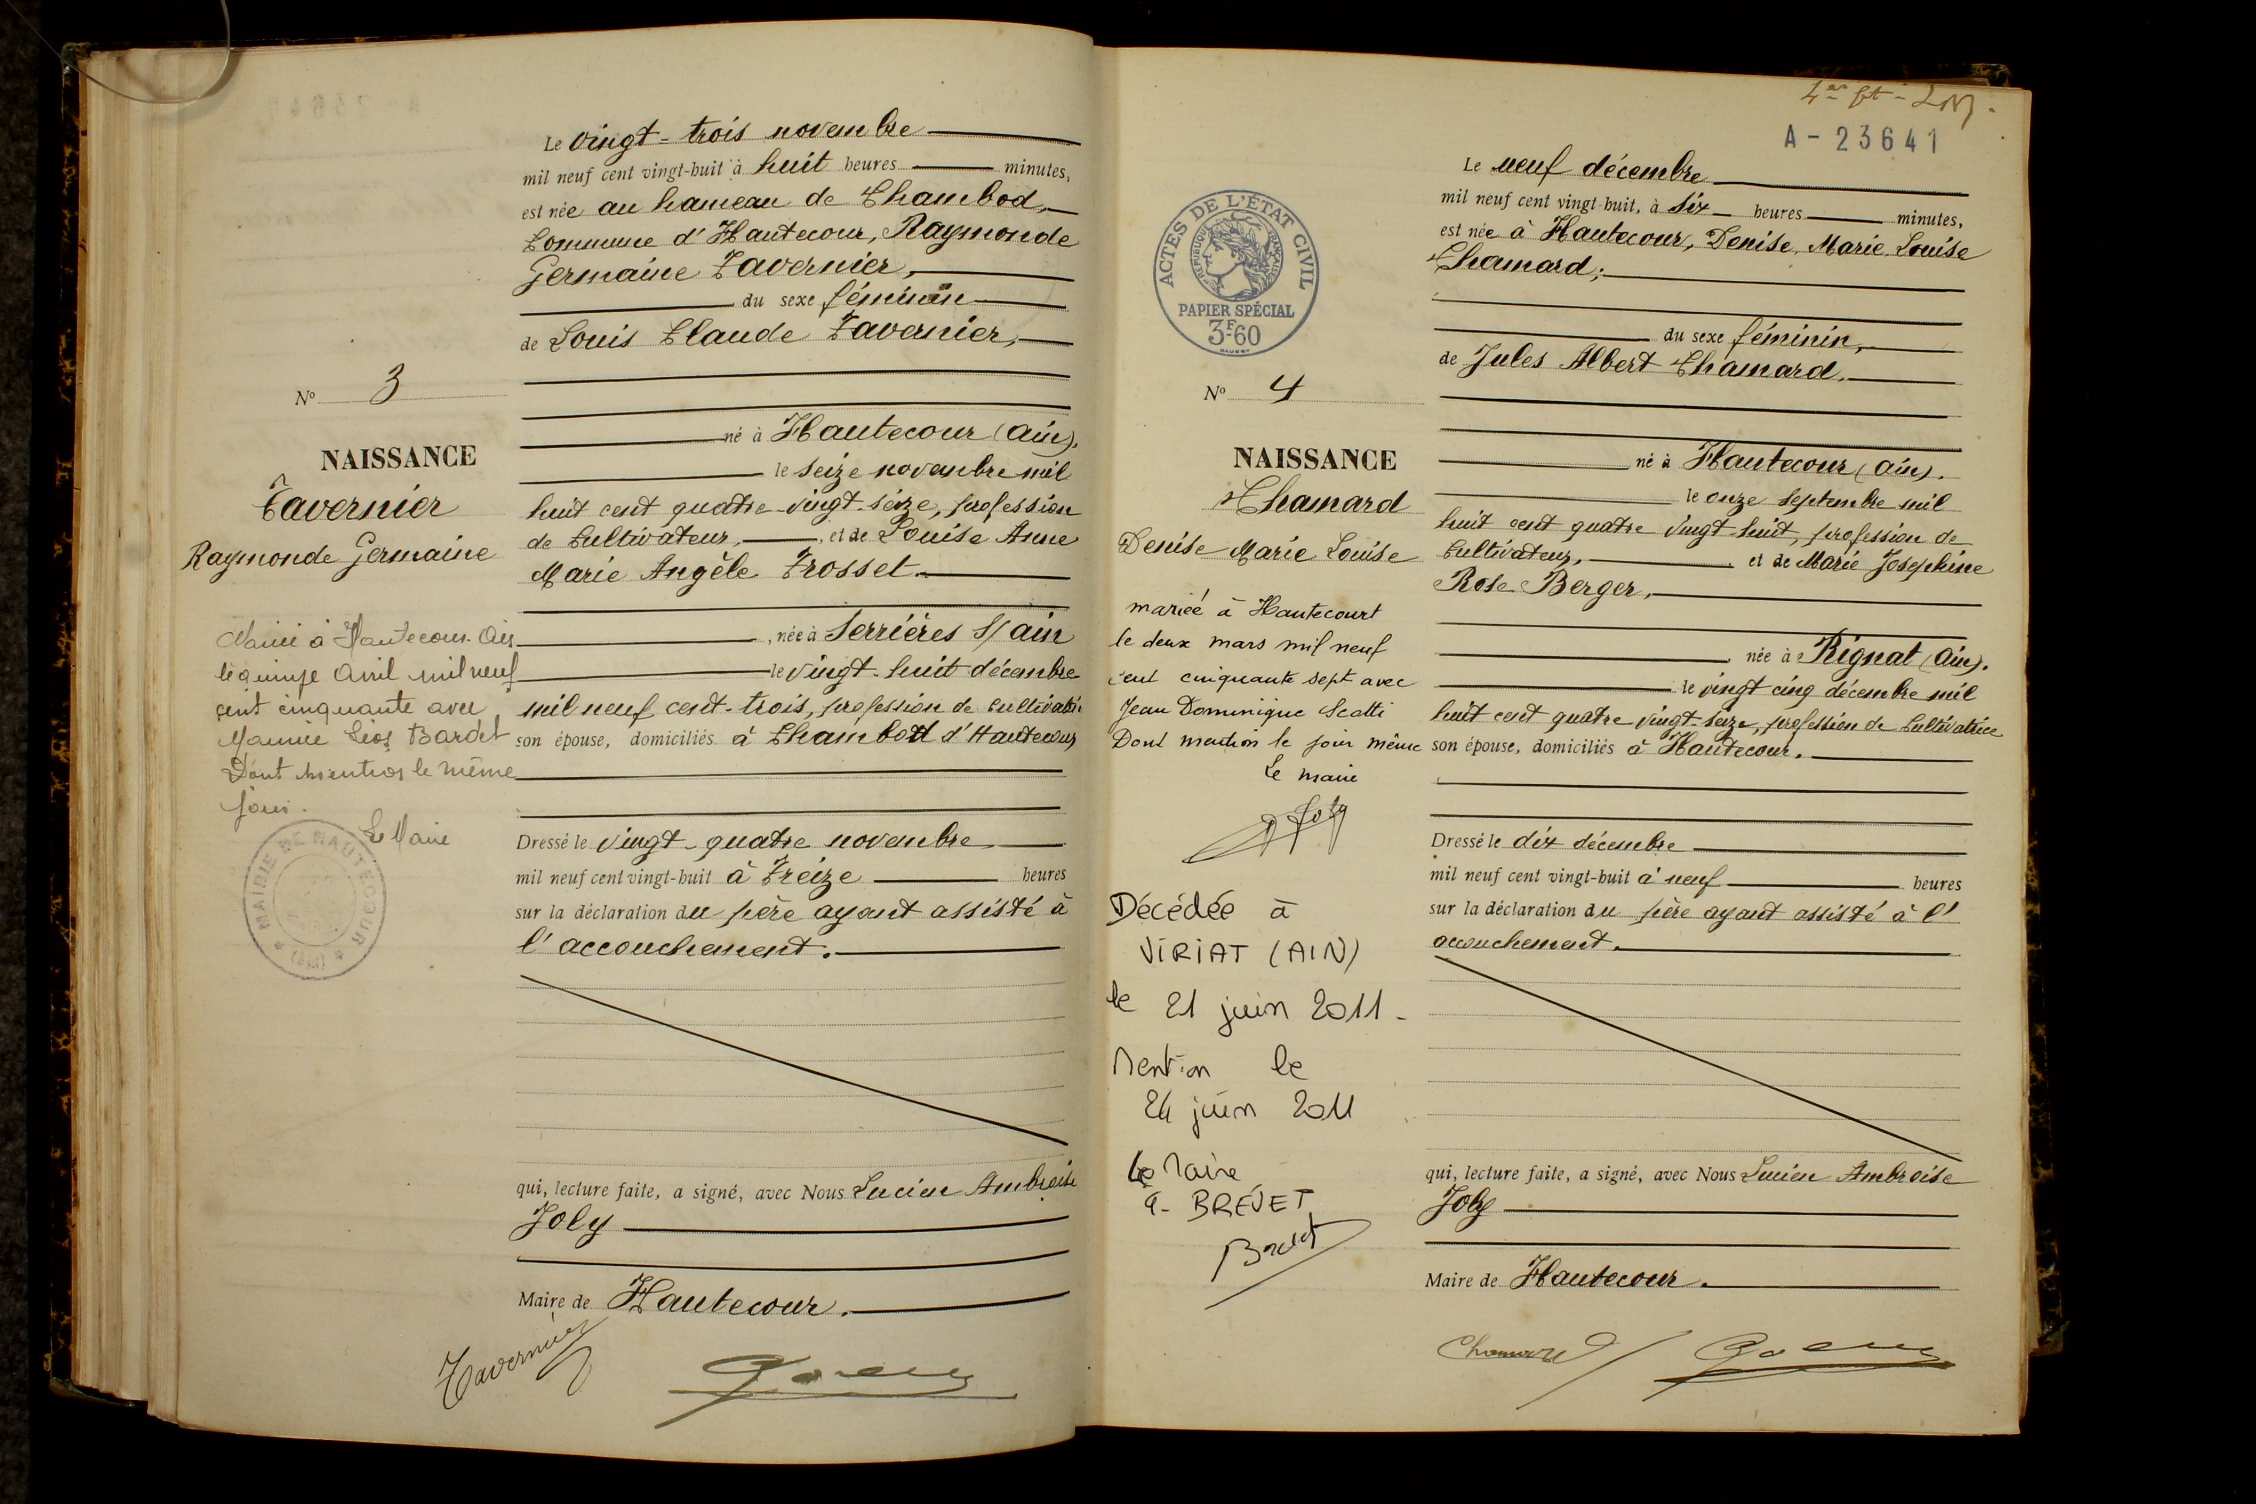 Le vingt-trois novembre
mil neuf cent vingt-huit à huit heures minutes,
est née au hameau de Chambod,
Commune d'Hautecour, Raymonde
Germaine Tavernier,
du sexe féminin
de Louis Claude Tavernier,
né à Hautecour (Ain),
le seize novembre mil
huit cent quatre-vingt-seize, profession
de Cultivateur, et de Louise Anne
Marie Angèle Trosset
, née à Serrières s/ Ain
le vingt-huit décembre
mil neuf cent-trois, profession de cultivatri
son épouse, domiciliés à Chambod d'Hautecour
Dressé le vingt-quatre novembre
mil neuf cent vingt-huit à Treize heures
sur la déclaration du père ayant assisté à
l'accouchement.
qui, lecture faite, a signé, avec Nous Lucien Ambroise
Joly
Maire de Hautecour.
Tavernier
No 3
NAISSANCE
Tavernier
Raymonde Germaine
Mariée à Hautecour Ain
le quinze Avril mil neuf
cent cinquante avec
Maurice Léos Bardet
Dont mention le même
jour.
Le Maire
MAIRIE DE HAUTECOUR
(AIN)
A-23641
ACTES DE L'ÉTAT CIVIL
RÉPUBLIQUE FRANÇAISE
PAPIER SPÉCIAL
3F60
No 4
NAISSANCE
Chamard
Denise Marie Louise
mariée à Hautecourt
le deux mars mil neuf
cent cinquante sept avec
Jean Dominique Scatti
Dont mention le jour même
Le maire
Joly
Décédée à
VIRIAT (AIN)
le 21 juin 2011-
Mention le
24 juin 2011
Le Maire
BREVET
Le neuf décembre
mil neuf cent vingt-huit, à six heures minutes,
est née à Hautecour, Denise, Marie, Louise
Chamard;
du sexe féminin,
de Jules Albert Chamard,
né à Hautecour (Ain).
le onze septembre mil
huit cent quatre vingt-huit, profession de
Cultivateur, et de Marie Joséphine
Rose Berger,
née à Rignat (Ain).
le vingt cinq décembre mil
huit cent quatre vingt-seize, profession de Cultivatrice
son épouse, domiciliés à Hautecour.
Dressé le dix décembre
mil neuf cent vingt-huit à neuf heures
sur la déclaration du père ayant assisté à l'
accouchement.
qui, lecture faite, a signé, avec Nous Lucien Ambroise
Joly
Maire de Hautecour.
Chamard